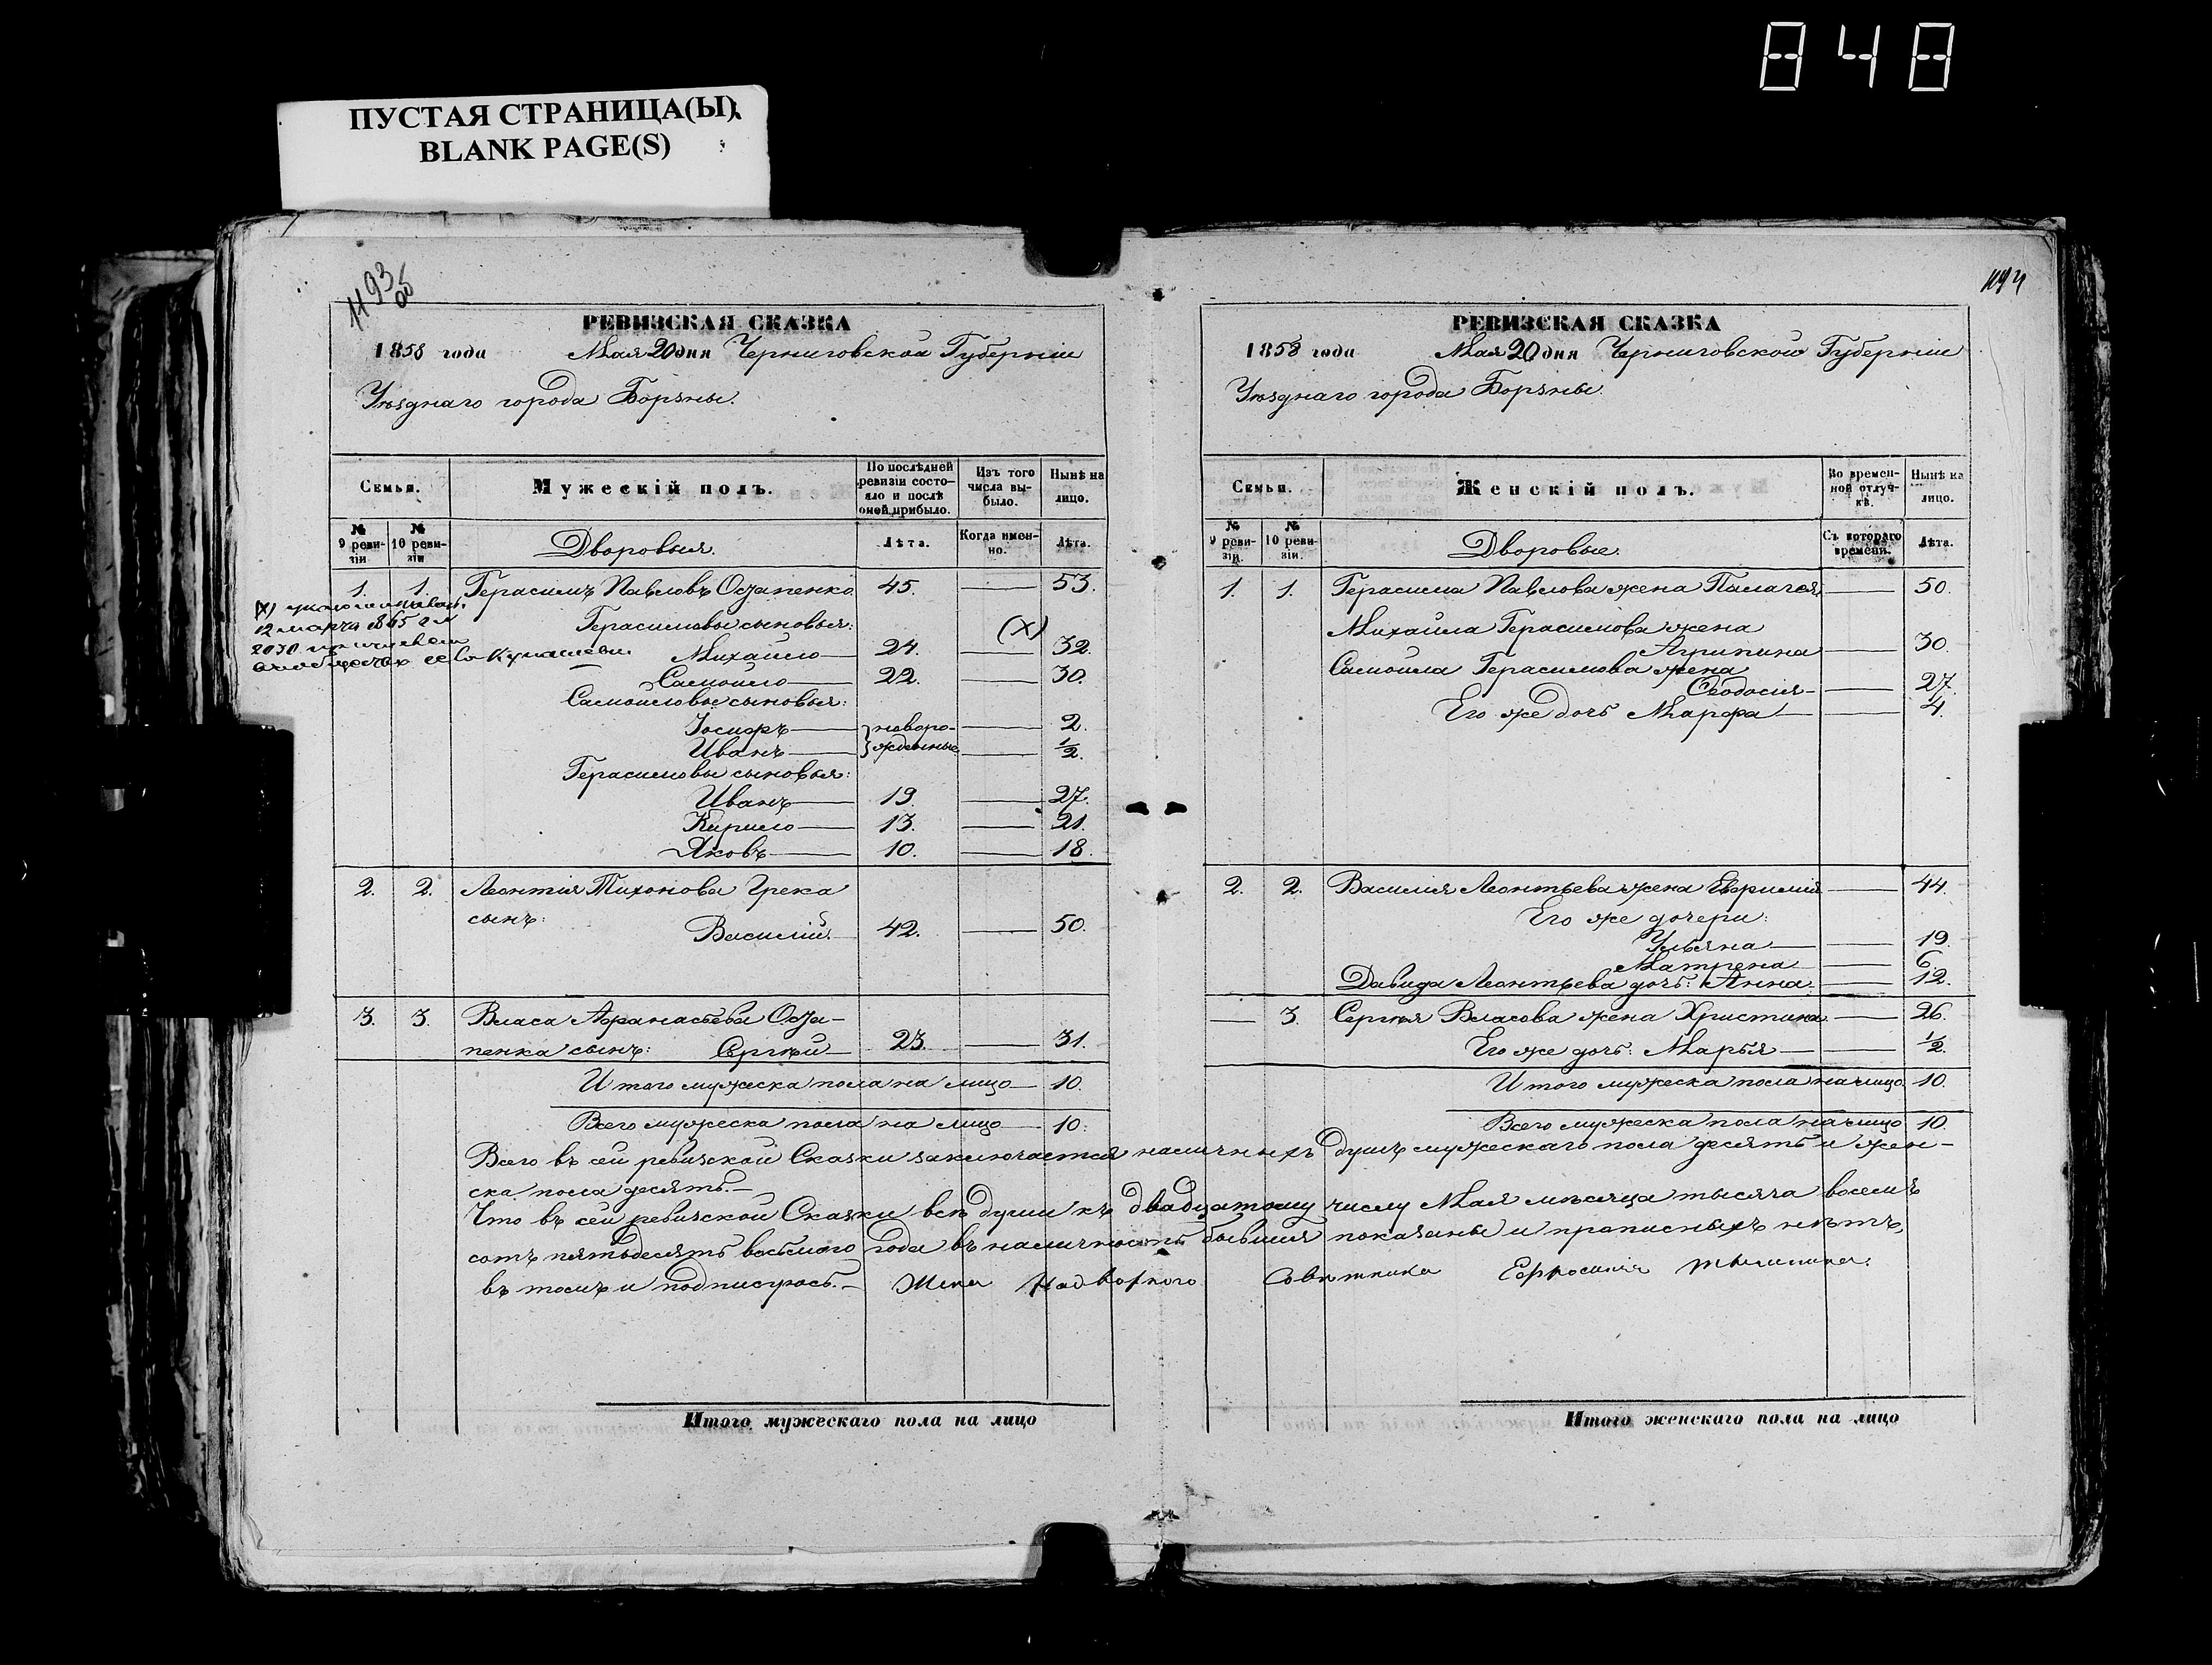 848
ПУСТАЯ СТРАНИЦА(Ы)
BLANK PAGE(S)
1193 об
РЕВИЗСКАЯ СКАЗКА
1858 года Мая 20 дня Черниговской Губерніи
Уѣзднаго города Борзны.
Семьи.
Мужескій полъ.
По послѣдней ревизіи состояло и послѣ оной прибыло.
Изъ того числа выбыло.
Нынѣ на лицо.
№ 9 ревизіи
№ 10 ревизіи
Дворовыя.
Лѣта.
Когда именно.
Лѣта.
1. 1. Герасимъ Павловъ Осапенко 45. — 53.
12 марта 1865
Герасимовы сыновья: (X)
Михайло — 24. 32.
Самойло — 22. — 30.
Самойловы сыновья:
Іосифъ — новоро- — 2.
Иванъ — жденные — ½.
Герасимовы сыновья:
Иванъ — 19. — 27.
Кирило — 13. — 21.
Яковъ — 10. — 18.
2. 2. Леонтія Тихонова Грека
сынъ:
Василій — 42. — 50.
3. 3. Власа Афанасьева Оса-
пенка сынъ: Сергѣй — 23. — 31.
Итого мужеска пола на лицо — 10.
Всего мужеска пола на лицо — 10.
Итого мужескаго пола на лицо
РЕВИЗСКАЯ СКАЗКА
1858 года Мая 20 дня Черниговской Губерніи
Уѣзднаго города Борзны.
Семьи.
Женскій полъ.
Во временной отлучкѣ.
Нынѣ на лицо.
№ 9 ревизіи.
№ 10 ревизіи.
Дворовые.
Съ котораго времени.
Лѣта.
1. 1. Герасима Павлова жена Палагея — 50.
Михайла Герасимова жена
Агрипина — 30.
Самойла Герасимова жена
Ѳеодосія — 27.
Его же дочь Марфа — 4.
2. 2. Василія Леонтьева жена Евфимія — 44.
Его же дочери:
Ульяна — 19.
Матрена — 6.
Давида Леонтьева дочь: Анна — 12.
— 3. Сергѣя Власова жена Христина — 26.
Его же дочь: Марья — ½.
Итого мужеска пола налицо 10.
Всего мужеска пола налицо 10.
Всего въ сей ревизской Сказки заключается наличныхъ душъ мужескаго пола десять и жен-
ска пола десять.—
Что въ сей ревизской Сказки всѣ души къ двадцатому числу Мая мѣсяца тысяча восемь
сотъ пятьдесятъ восьмого года въ наличность бывшія показаны и прописныхъ нѣтъ,
въ томъ и подписуюсь.— Жена Надворного Совѣтника Ефросинія
Итого женскаго пола на лицо